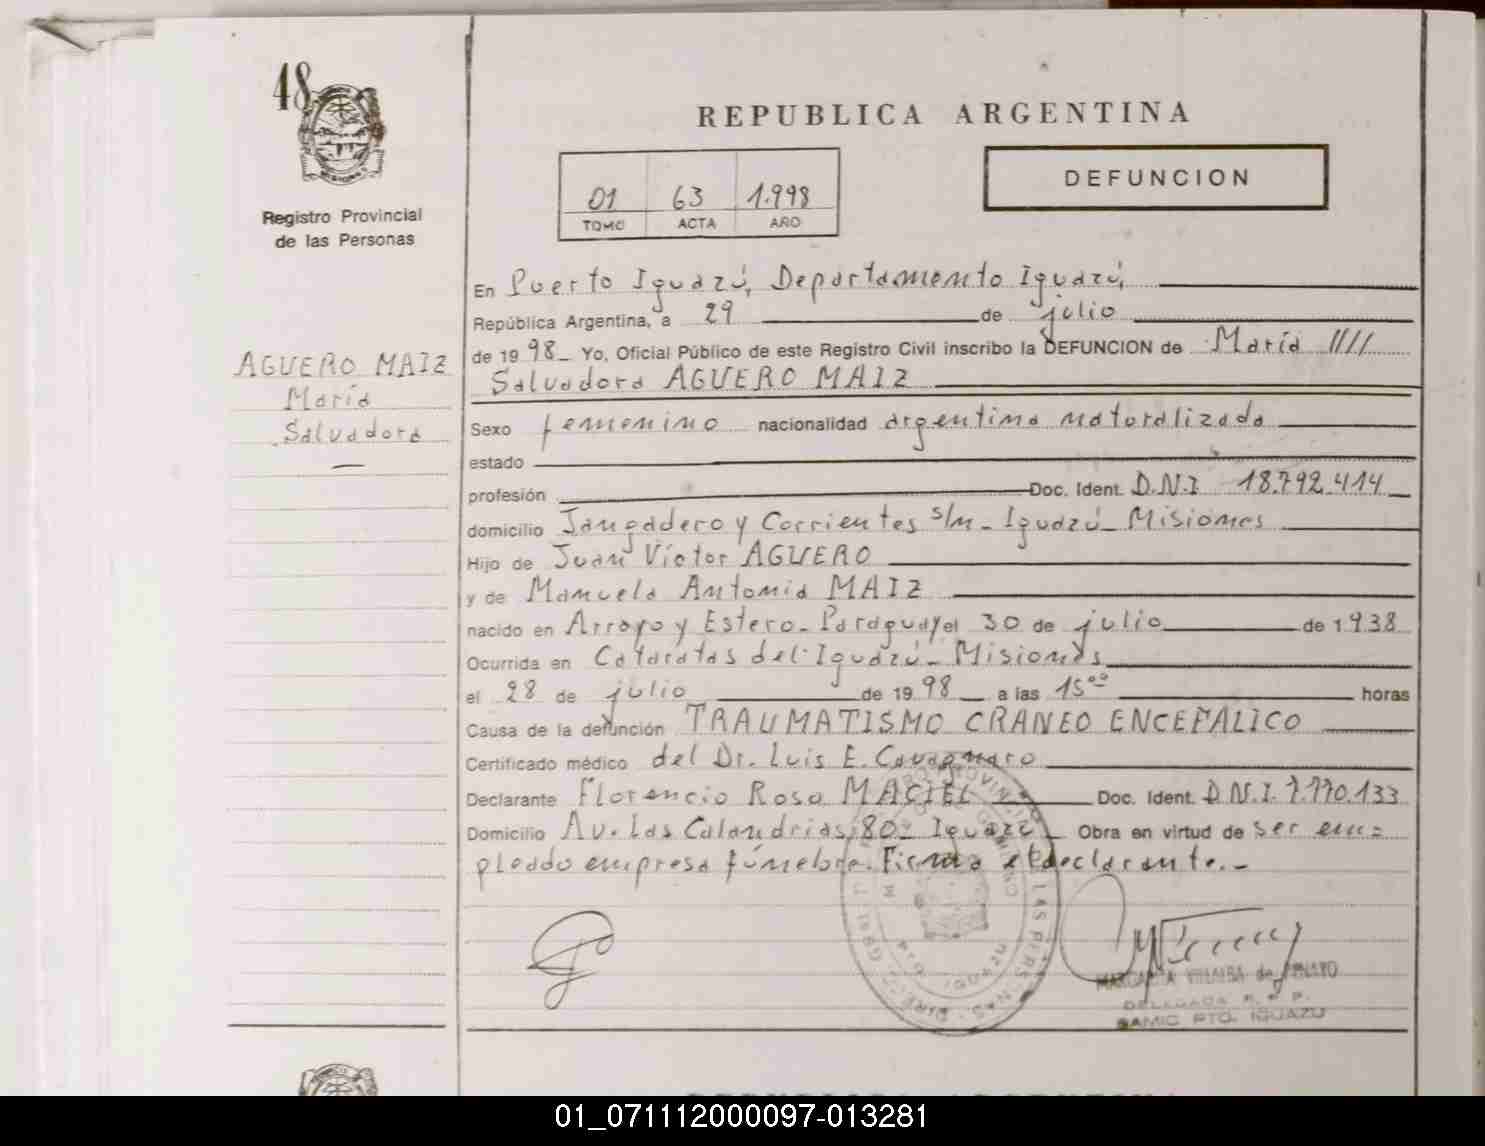 48
MISIONES
Registro Provincial
de las Personas
REPUBLICA ARGENTINA
DEFUNCION
01 63 1.998
TOMO ACTA AÑO
En Puerto Iguazú, Departamento Iguazú,
República Argentina, a 29 de julio
de 1998_ Yo, Oficial Público de este Registro Civil inscribo la DEFUNCION de María ////
Salvadora AGUERO MAIZ
AGUERO MAIZ
María
Salvadora
Sexo femenino nacionalidad argentina naturalizada
estado
profesión Doc. Ident. D.N.I 18.792.414
domicilio Jangadero y Corrientes s/n_ Iguazú_ Misiones
Hijo de Juan Víctor AGUERO
y de Manuela Antonia MAIZ
nacido en Arroyo y Estero_ Paraguay el 30 de julio de 1938
Ocurrida en Cataratas del Iguazú_ Misiones
el 28 de julio de 1998_ a las 15ºº horas
Causa de la defunción TRAUMATISMO CRANEO ENCEFALICO
Certificado médico del Dr. Luis E. Cavagnaro
Declarante Florencio Roso MACIEL Doc. Ident. D.N.I. 7.770.133
Domicilio Av. Las Calandrias 80_ Iguazú_ Obra en virtud de ser em=
pleado empresa fúnebre. Firma el declarante._
MARGARITA VILLALBA de
DELEGADA R. P. P.
SAMIC PTO. IGUAZU
01_071112000097-013281